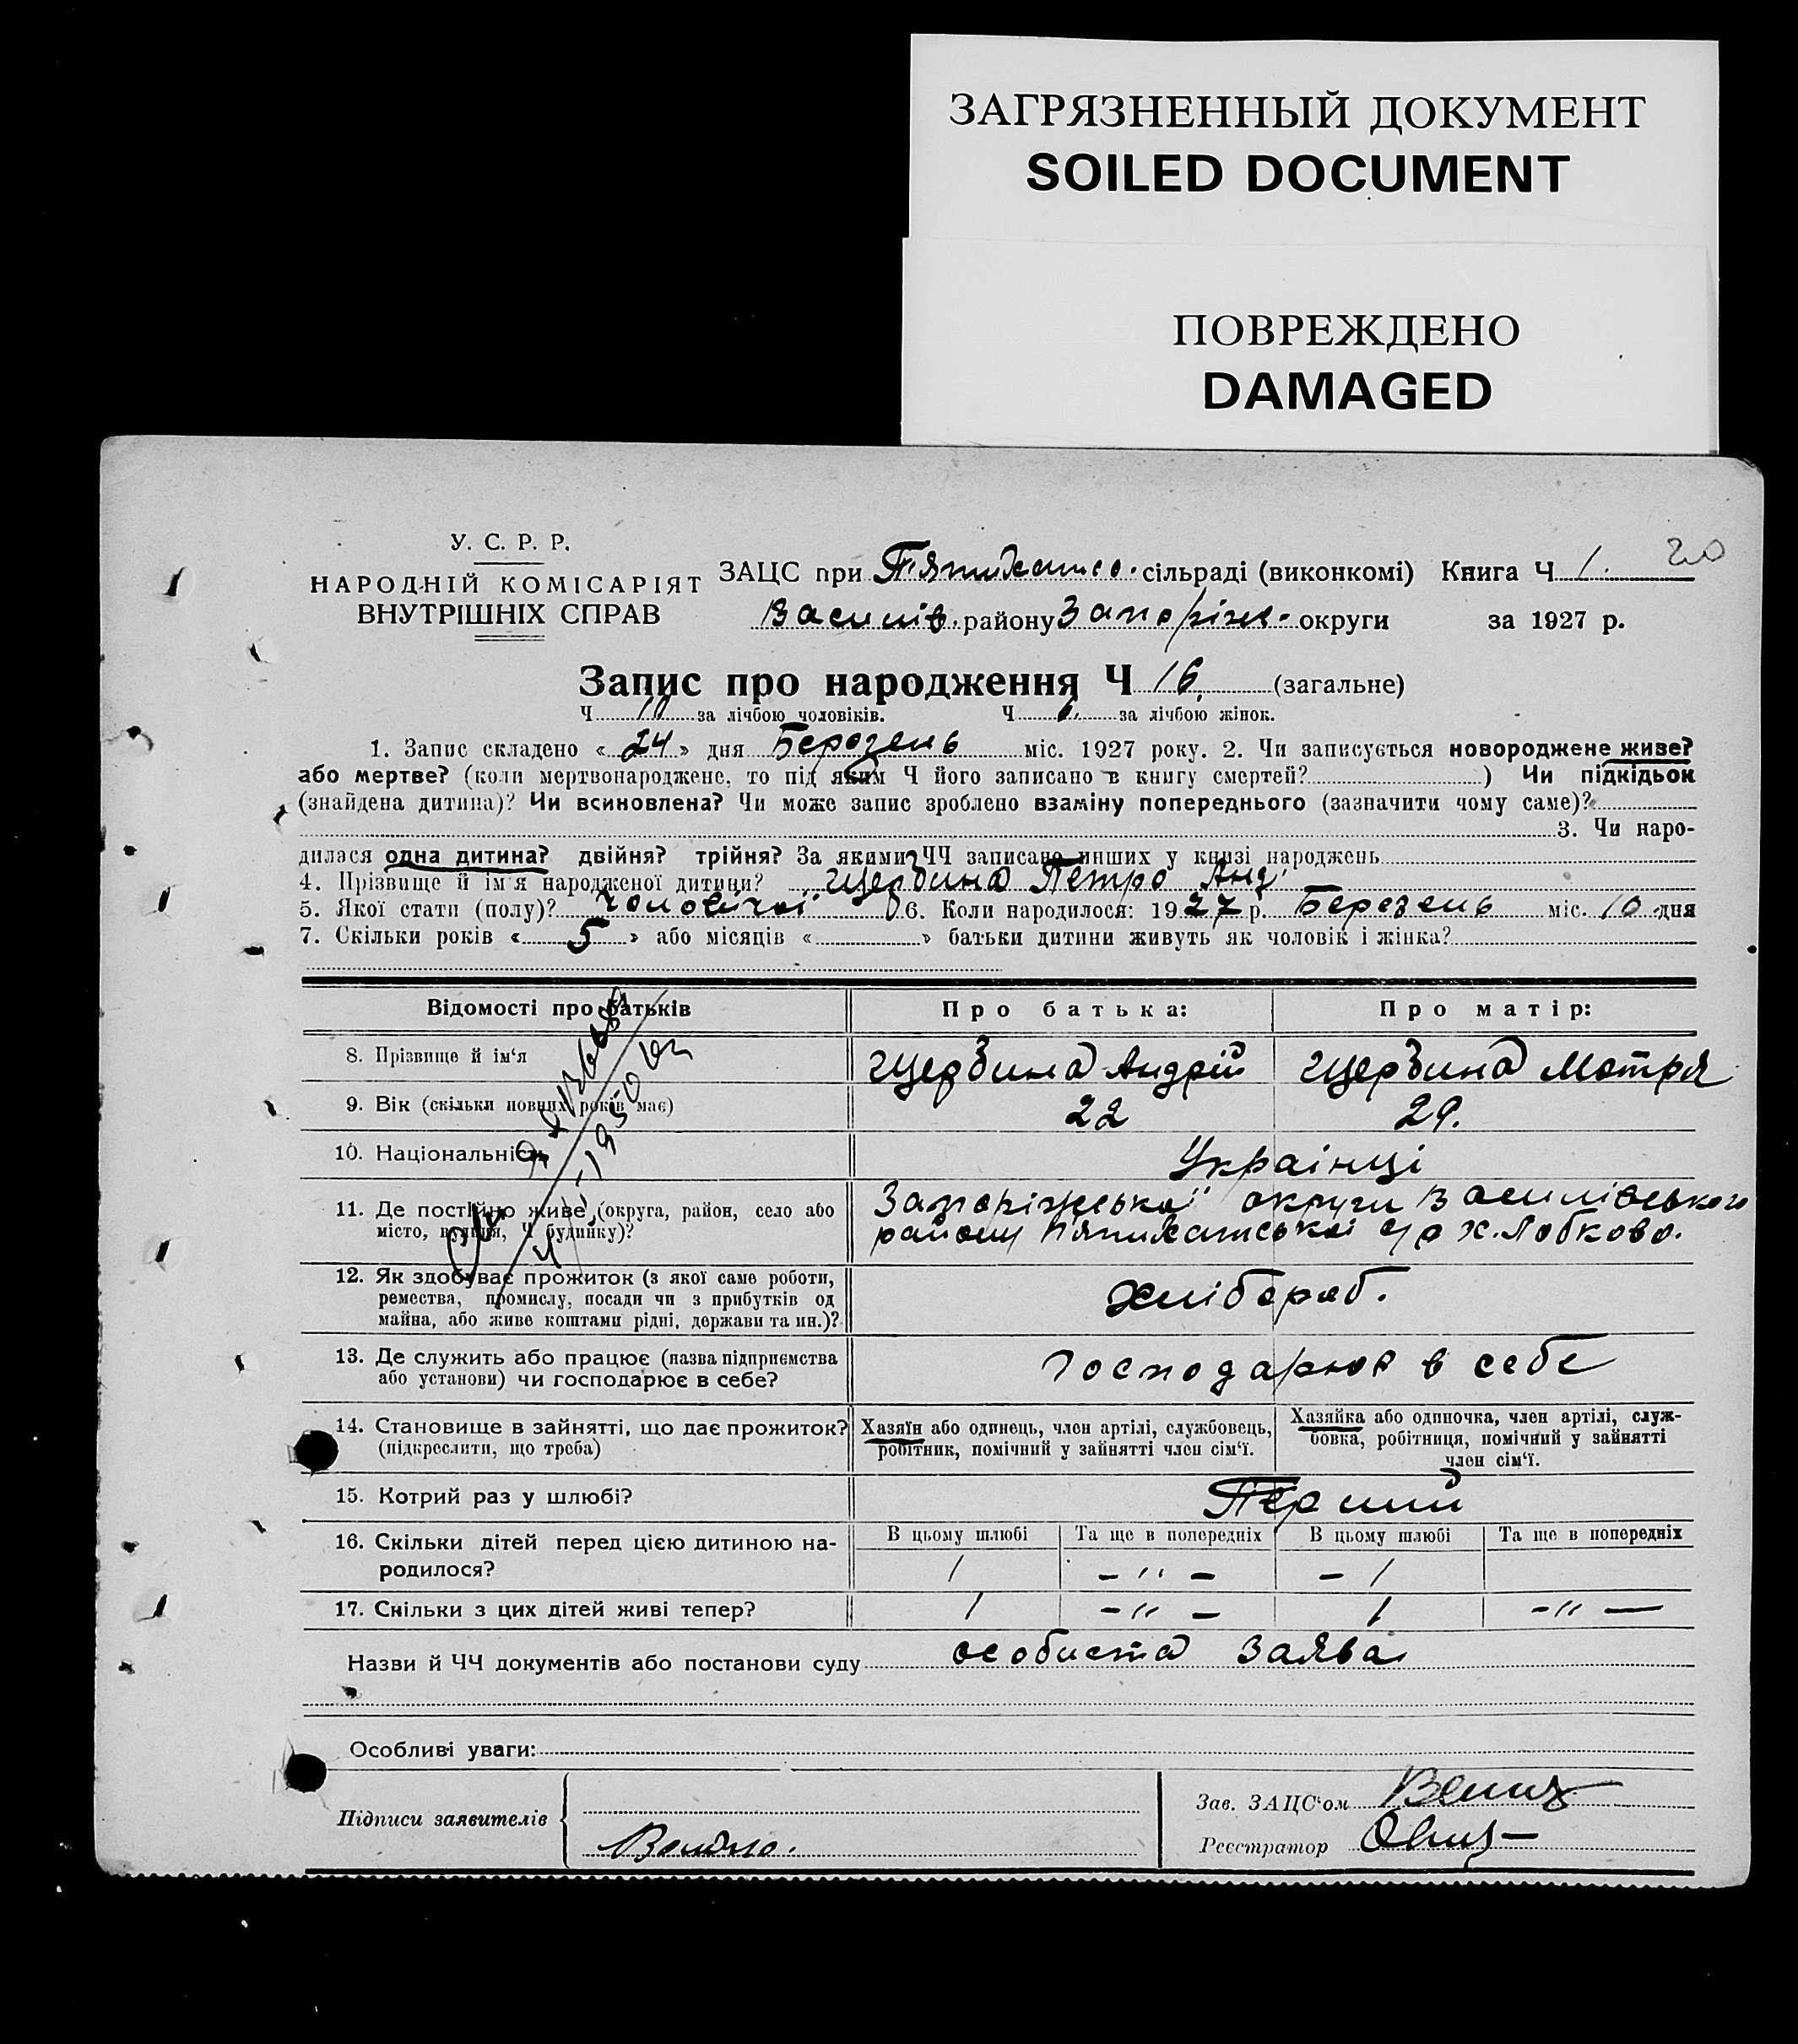 ЗАГРЯЗНЕННЫЙ ДОКУМЕНТ
SOILED DOCUMENT
ПОВРЕЖДЕНО
DAMAGED
У. С. Р. Р.
НАРОДНІЙ КОМІСАРІЯТ
ВНУТРІШНІХ СПРАВ
ЗАЦС при Пятихатсо. сільраді (виконкомі) Книга Ч 1. 20
Василів. району Запоріж. округи за 1927 р.
Запис про народження Ч 16. (загальне)
Ч 10 за лічбою чоловіків. Ч 6. за лічбою жінок.
1. Запис складено « 24 » дня Березень міс. 1927 року. 2. Чи записується новороджене живе?
або мертве? (коли мертвонароджене, то під яким Ч його записано в книгу смертей? ) Чи підкідьок
(знайдена дитина)? Чи всиновлена? Чи може запис зроблено взаміну попереднього (зазначити чому саме)?
3. Чи наро-
дилася одна дитина? двійня? трійня? За якими ЧЧ записано инших у книзі народжень
4. Прізвище й ім'я народженої дитини? Щербина Петро Анд.
5. Якої стати (полу)? Чоловічої 6. Коли народилося: 1927 р. Березень міс. 10 дня
7. Скільки років « 5 » або місяців « » батьки дитини живуть як чоловік і жінка?
Відомості про батьків Про батька: Про матір:
8. Прізвище й ім'я Щербина Андрій Щербина Мотря
9. Вік (скільки повних років має) 22 29.
10. Національність Українці
11. Де постійно живе, (округа, район, село або Запоріжської округи Василівського
місто, вулиця, Ч будинку)? району Пятихатської с/р х. Лобково.
12. Як здобуває прожиток (з якої саме роботи,
ремества, промислу, посади чи з прибутків од
майна, або живе коштами рідні, держави та ин.)? Хлібороб.
13. Де служить або працює (назва підприємства
або установи) чи господарює в себе? Господарює в себе
14. Становище в зайнятті, що дає прожиток? Хазяїн або одинець, член артілі, службовець, Хазяйка або одиночка, член артілі, служ-
(підкреслити, що треба) робітник, помічний у зайнятті член сім'ї. бовка, робітниця, помічний у зайнятті
член сім'ї.
15. Котрий раз у шлюбі? Перший
16. Скільки дітей перед цією дитиною на- В цьому шлюбі Та ще в попередніх В цьому шлюбі Та ще в попередніх
родилося? 1 – " – – 1
17. Скільки з цих дітей живі тепер? 1 – " – 1 – " –
Назви й ЧЧ документів або постанови суду особиста заява
Особливі уваги:
Підписи заявителів
Зав. ЗАЦС'ом
Реєстратор